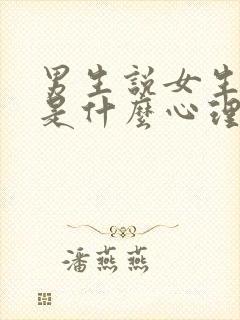 男生說女生
是什麼心理
潘燕燕